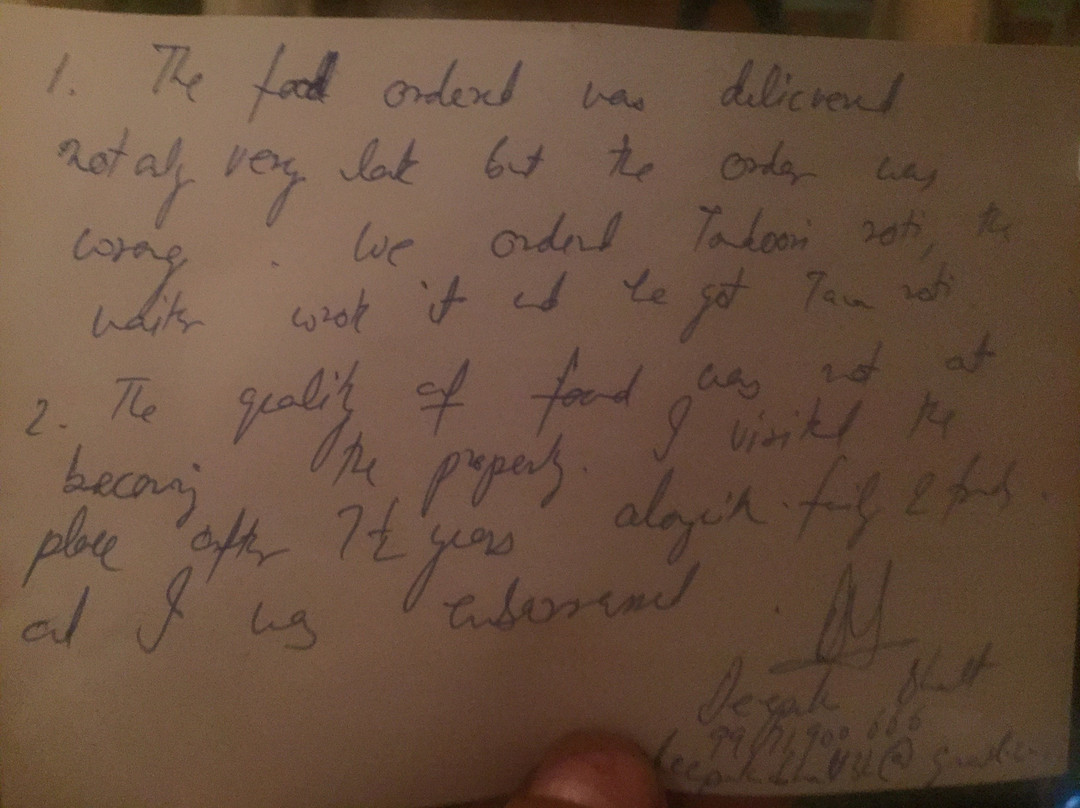 1. The food ordered was delivered
not only very late but the order was
wrong. We ordered Tandoori roti, the
waiter wrote it and he got Tawa roti.
2. The quality of food was not at
becoming the property. I visited the
place after 7½ years alongwith family & friends.
and I was embarrassed.
Deepak Bhatt